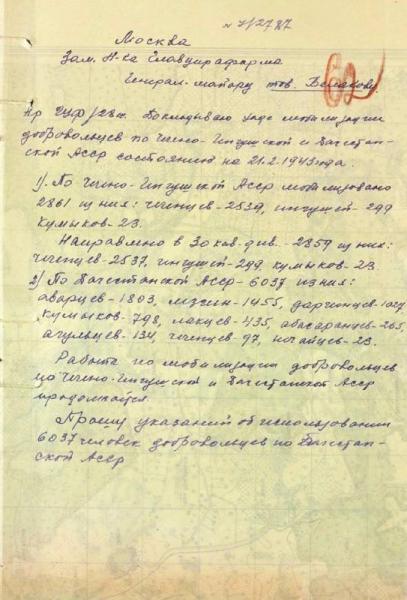 Москва
Зам. Н-ка Главупраформа
Генерал-майору тов.
Докладываю ходе мобилизации
добровольцев по Чечено-Ингушской и Дагестан-
ской Асср состоянию на 21.2.1943 года.
1). По Чечено-Ингушской Асср мобилизовано
2861 из них: чеченцев-2539, ингушет-299
кумыков-23.
Направлено в 30 кав. див.-2859 из них:
чеченцев-2537, ингушет-299, кумыков-23
2) По Дагестанской Асср-6037 из них:
аварцев-1803, лезгин-1455, даргинцев-1027
кумыков-798, лакцев-435, абасаранцев-265,
агульцев-134, чеченцев 97, ногайцев-23.
Работа по мобилизации добровольцев
по Чечено-Ингушской и Дагестанской Асср
продолжается.
Прошу указаний об использовании
6037 человек добровольцев по Дагестан-
ской Асср